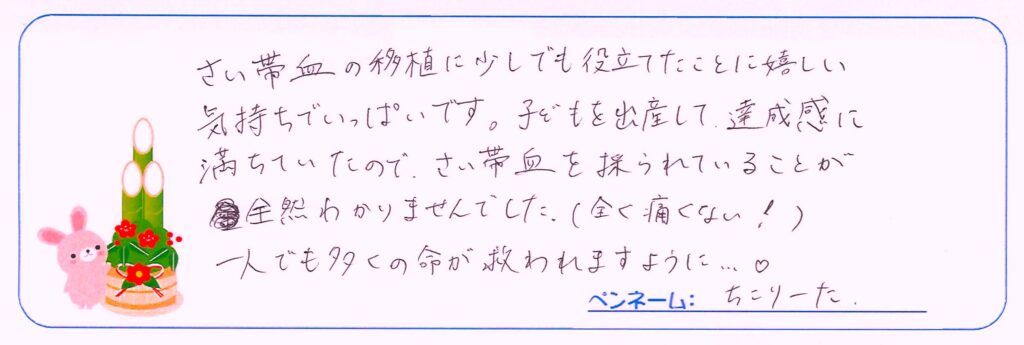 さい帯血の移植に少しでも役立てたことに嬉しい
気持ちでいっぱいです。子どもを出産して、達成感に
満ちていたので、さい帯血を採られていることが
全然わかりませんでした、(全く痛くない!)
一人でも多くの命が救われますように…♡
ペンネーム: ちこりーた.